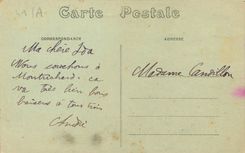 Carte Postale
CORRESPONDANCE
ADRESSE
Ma chère Ida
Nous couchons à
Montrichard. ça
va très bien bons
baisers à tous trois
André
Madame Candillon